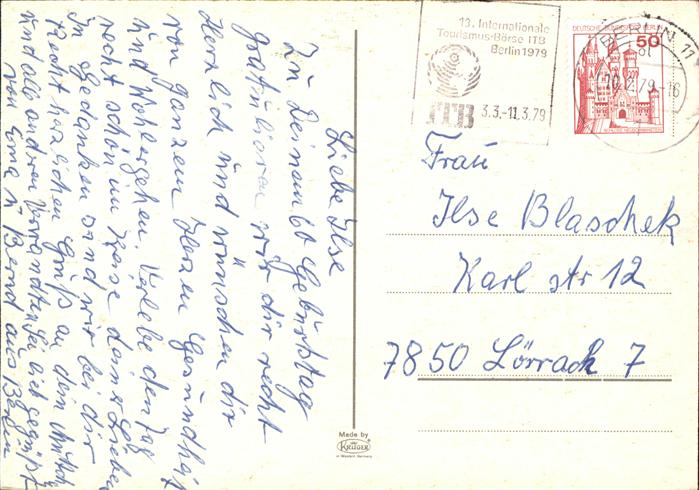 Liebe Ilse
Zu Deinem 60 Geburtstag
gratulieren wir dir recht
Herzlich und wünschen dir
von ganzem Herzen Gesundheit
und Wohlergehen. Verlebe den Tag
recht schön im Kreise deiner Lieben
in Gedanken sind wir bei dir
Recht herzlichen Gruß an dein
und all anderen Verwandten sei lieb gegrüßt
von Erna u Bernd aus Berlin
13. Internationale
Tourismus-Börse ITB
Berlin 1979
ITB 3.3.-11.3.79
DEUTSCHE BUNDESPOST BERLIN
50
SCHLOSS NEUSCHWANSTEIN
BERLIN 11
.2.79-16
Frau
Ilse Blaschek
Karl str 12
7850 Lörrach 7
Made by
KRÜGER
in Western Germany